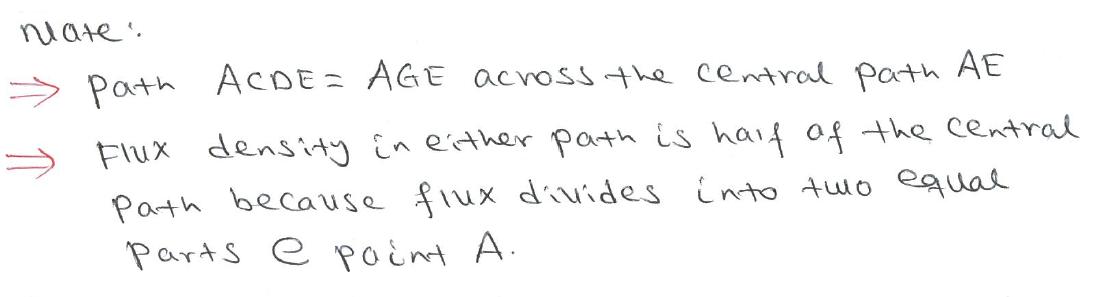 Note:
⇒ Path ACDE = AGE across the central path AE
⇒ Flux density in either path is half of the central
path because flux divides into two equal
parts @ point A.